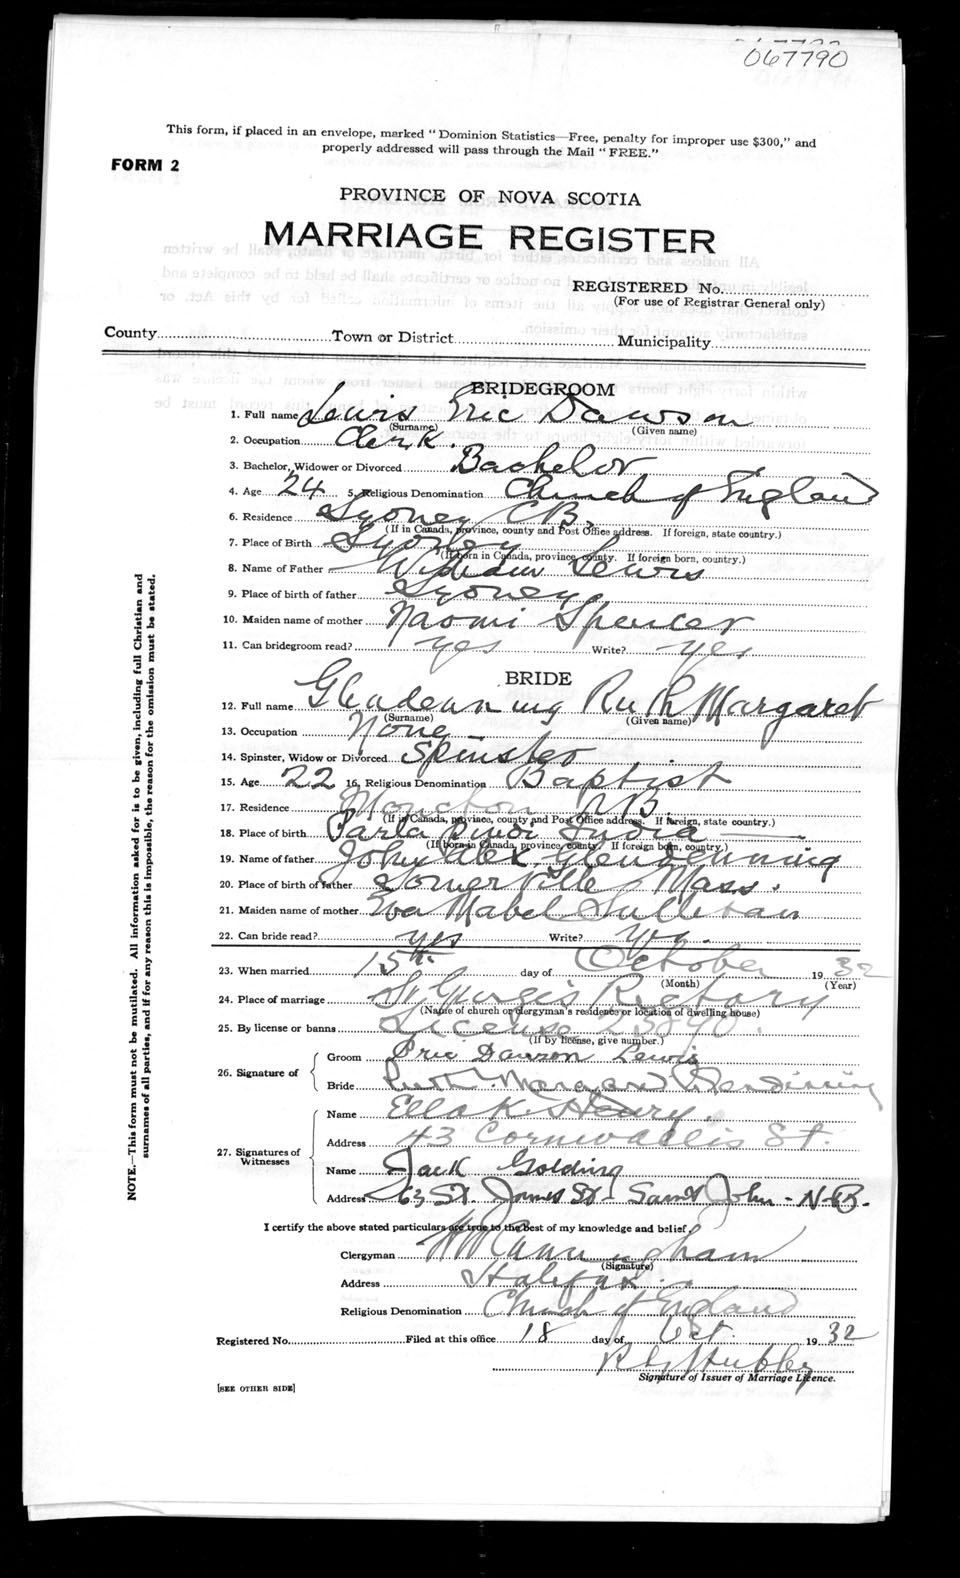 067790
This form, if placed in an envelope, marked "Dominion Statistics—Free, penalty for improper use $300," and
properly addressed will pass through the Mail "FREE."
FORM 2
PROVINCE OF NOVA SCOTIA
MARRIAGE REGISTER
REGISTERED No.
(For use of Registrar General only)
County Town or District Municipality
BRIDEGROOM
1. Full name Lewis Eric Dawson
(Surname) (Given name)
2. Occupation Clerk.
3. Bachelor, Widower or Divorced Bachelor
4. Age 24 5. Religious Denomination Church of England
6. Residence Sydney CB.
(If in Canada, province, county and Post Office address. If foreign, state country.)
7. Place of Birth Sydney
(If born in Canada, province, county. If foreign born, country.)
8. Name of Father William Lewis
9. Place of birth of father Sydney
10. Maiden name of mother Naomi Spencer
11. Can bridegroom read? yes Write? yes
BRIDE
12. Full name Glendenning Ruth Margaret
(Surname) (Given name)
13. Occupation None
14. Spinster, Widow or Divorced Spinster
15. Age 22 16. Religious Denomination Baptist
17. Residence Moncton NB
(If in Canada, province, county and Post Office address. If foreign, state country.)
18. Place of birth Parla India
(If born in Canada, province, county. If foreign born, country.)
19. Name of father John Alex. Glendenning
20. Place of birth of father Somerville Mass.
21. Maiden name of mother Eva Mabel Sullivan
22. Can bride read? yes Write? yes.
23. When married 15th. day of October 19 32
(Month) (Year)
24. Place of marriage St Georges Rectory
(Name of church or clergyman's residence or location of dwelling house)
25. By license or banns License
(If by license, give number.)
26. Signature of Groom Eric Dawson Lewis
Bride Ruth Margaret Glendenning
27. Signatures of Witnesses
Name Ella K. Henry.
Address 43 Cornwallis St.
Name Jack Golding
Address 63 St. James St Saint John - N.B.
I certify the above stated particulars are true to the best of my knowledge and belief,
Clergyman Cunningham
(Signature)
Address Halifax
Religious Denomination Church of England
Registered No. Filed at this office 18 day of Oct. 19 32
Signature of Issuer of Marriage Licence.
[SEE OTHER SIDE]
NOTE.—This form must not be mutilated. All information asked for is to be given, including full Christian and
surnames of all parties, and if for any reason this is impossible, the reason for the omission must be stated.